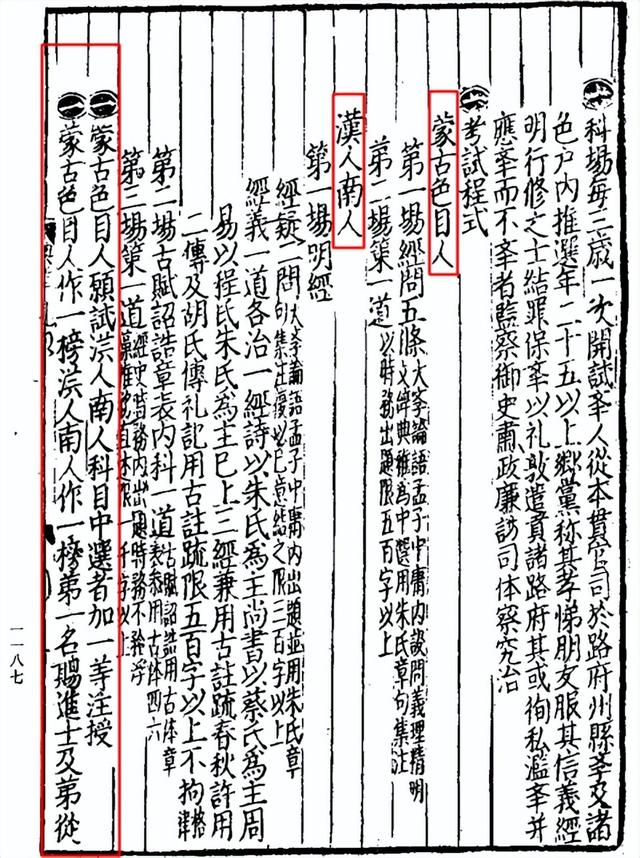 科場每三歲一次開試举人從本貫官司於路府州縣李及諸
色户内推選年二十五以上鄉黨称其孝悌朋友服其信義經
明行修之士结罪保举以礼敦遣貢諸路府其或徇私濫举并
應举而不举者監察御史肅政廉訪司体察究治
考試程式
蒙古色目人
第一場經問五條大学論語孟子中庸内設問義理精明文辞典雅為中選用朱氏章句集註
第二場策一道以時務出題限五百字以上
漢人南人
第一場明經
經疑二問大学論語孟子中庸内出題並用朱氏章句集註復以己意結之限三百字以上
經義一道各治一經詩以朱氏為主尚書以蔡氏為主周
易以程氏朱氏為主已上三經兼用古註疏春秋許用
三傳及胡氏傳礼記用古註疏限五百字以上不拘格律
第二場古賦詔誥章表内科一道古賦詔誥用古体章表參用古体四六
第三場策一道經史時務内出題時務不矜浮藻惟務直述限一千字以上
蒙古色目人願試汉人南人科目中選者加一等注授
蒙古色目人作一榜汉人南人作一榜第一名賜進士及第從
一一八七